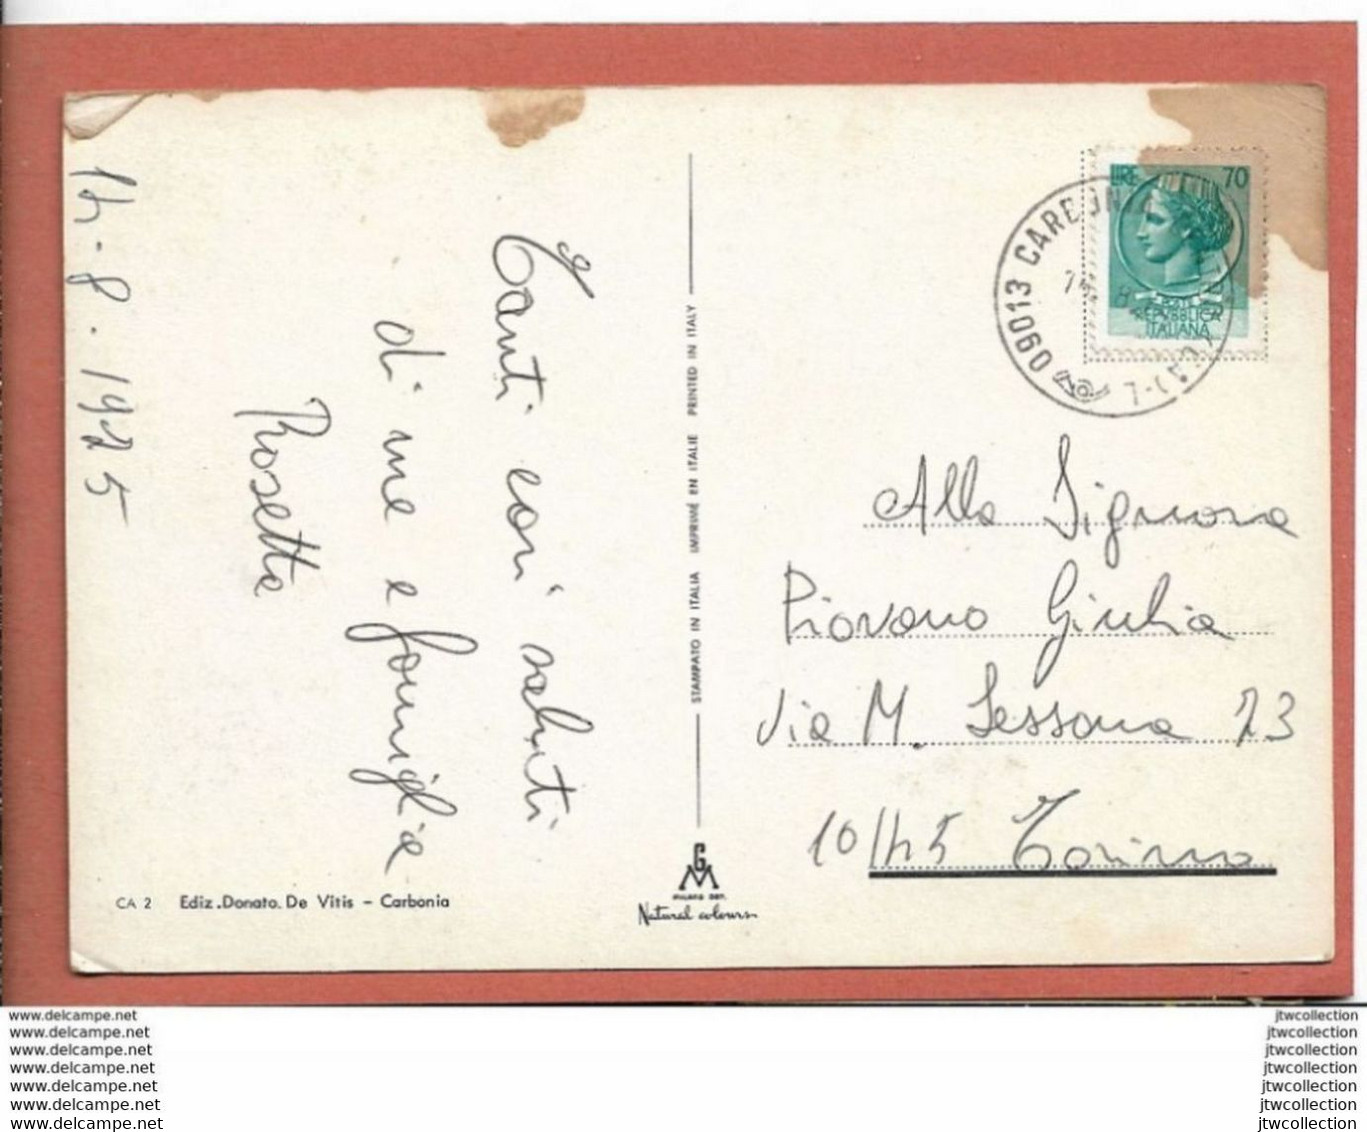 14-8-1975
Tanti cari saluti
di me e famiglia
Rosetta
CA 2 Ediz. Donato De Vitis - Carbonia
STAMPATO IN ITALIA IMPRIMÉ EN ITALIE PRINTED IN ITALY
GM
MILANO
Natural colours
LIRE 70
POSTE
REPVBBLICA
ITALIANA
09013 CARBONIA
Alla Signora
Piovano Giulia
Via M. Sessona 23
10145 Torino
www.delcampe.net
www.delcampe.net
www.delcampe.net
www.delcampe.net
www.delcampe.net
www.delcampe.net
www.delcampe.net
jtwcollection
jtwcollection
jtwcollection
jtwcollection
jtwcollection
jtwcollection
jtwcollection